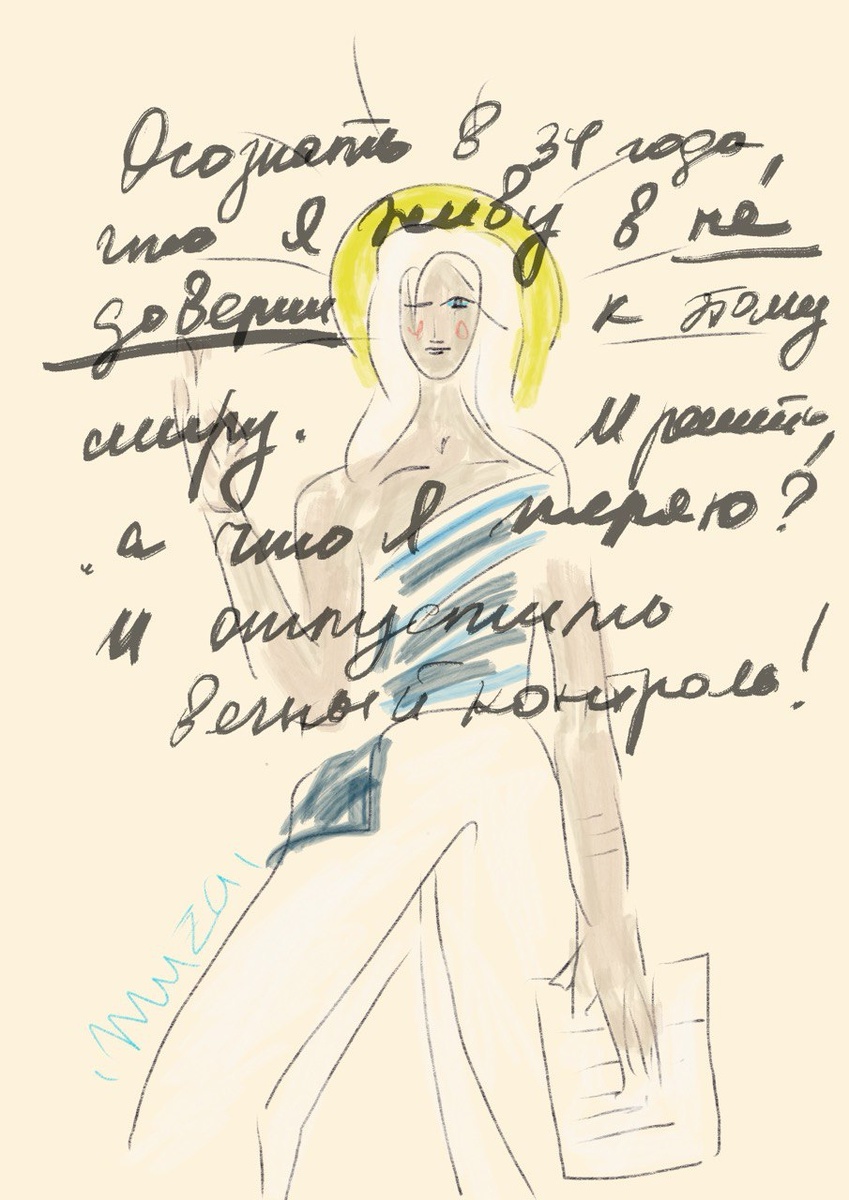 Осознать в 34 года,
что я живу в не
доверии к этому
миру. И решить,
"а что я теряю?
И отпустить
вечный контроль!
muza